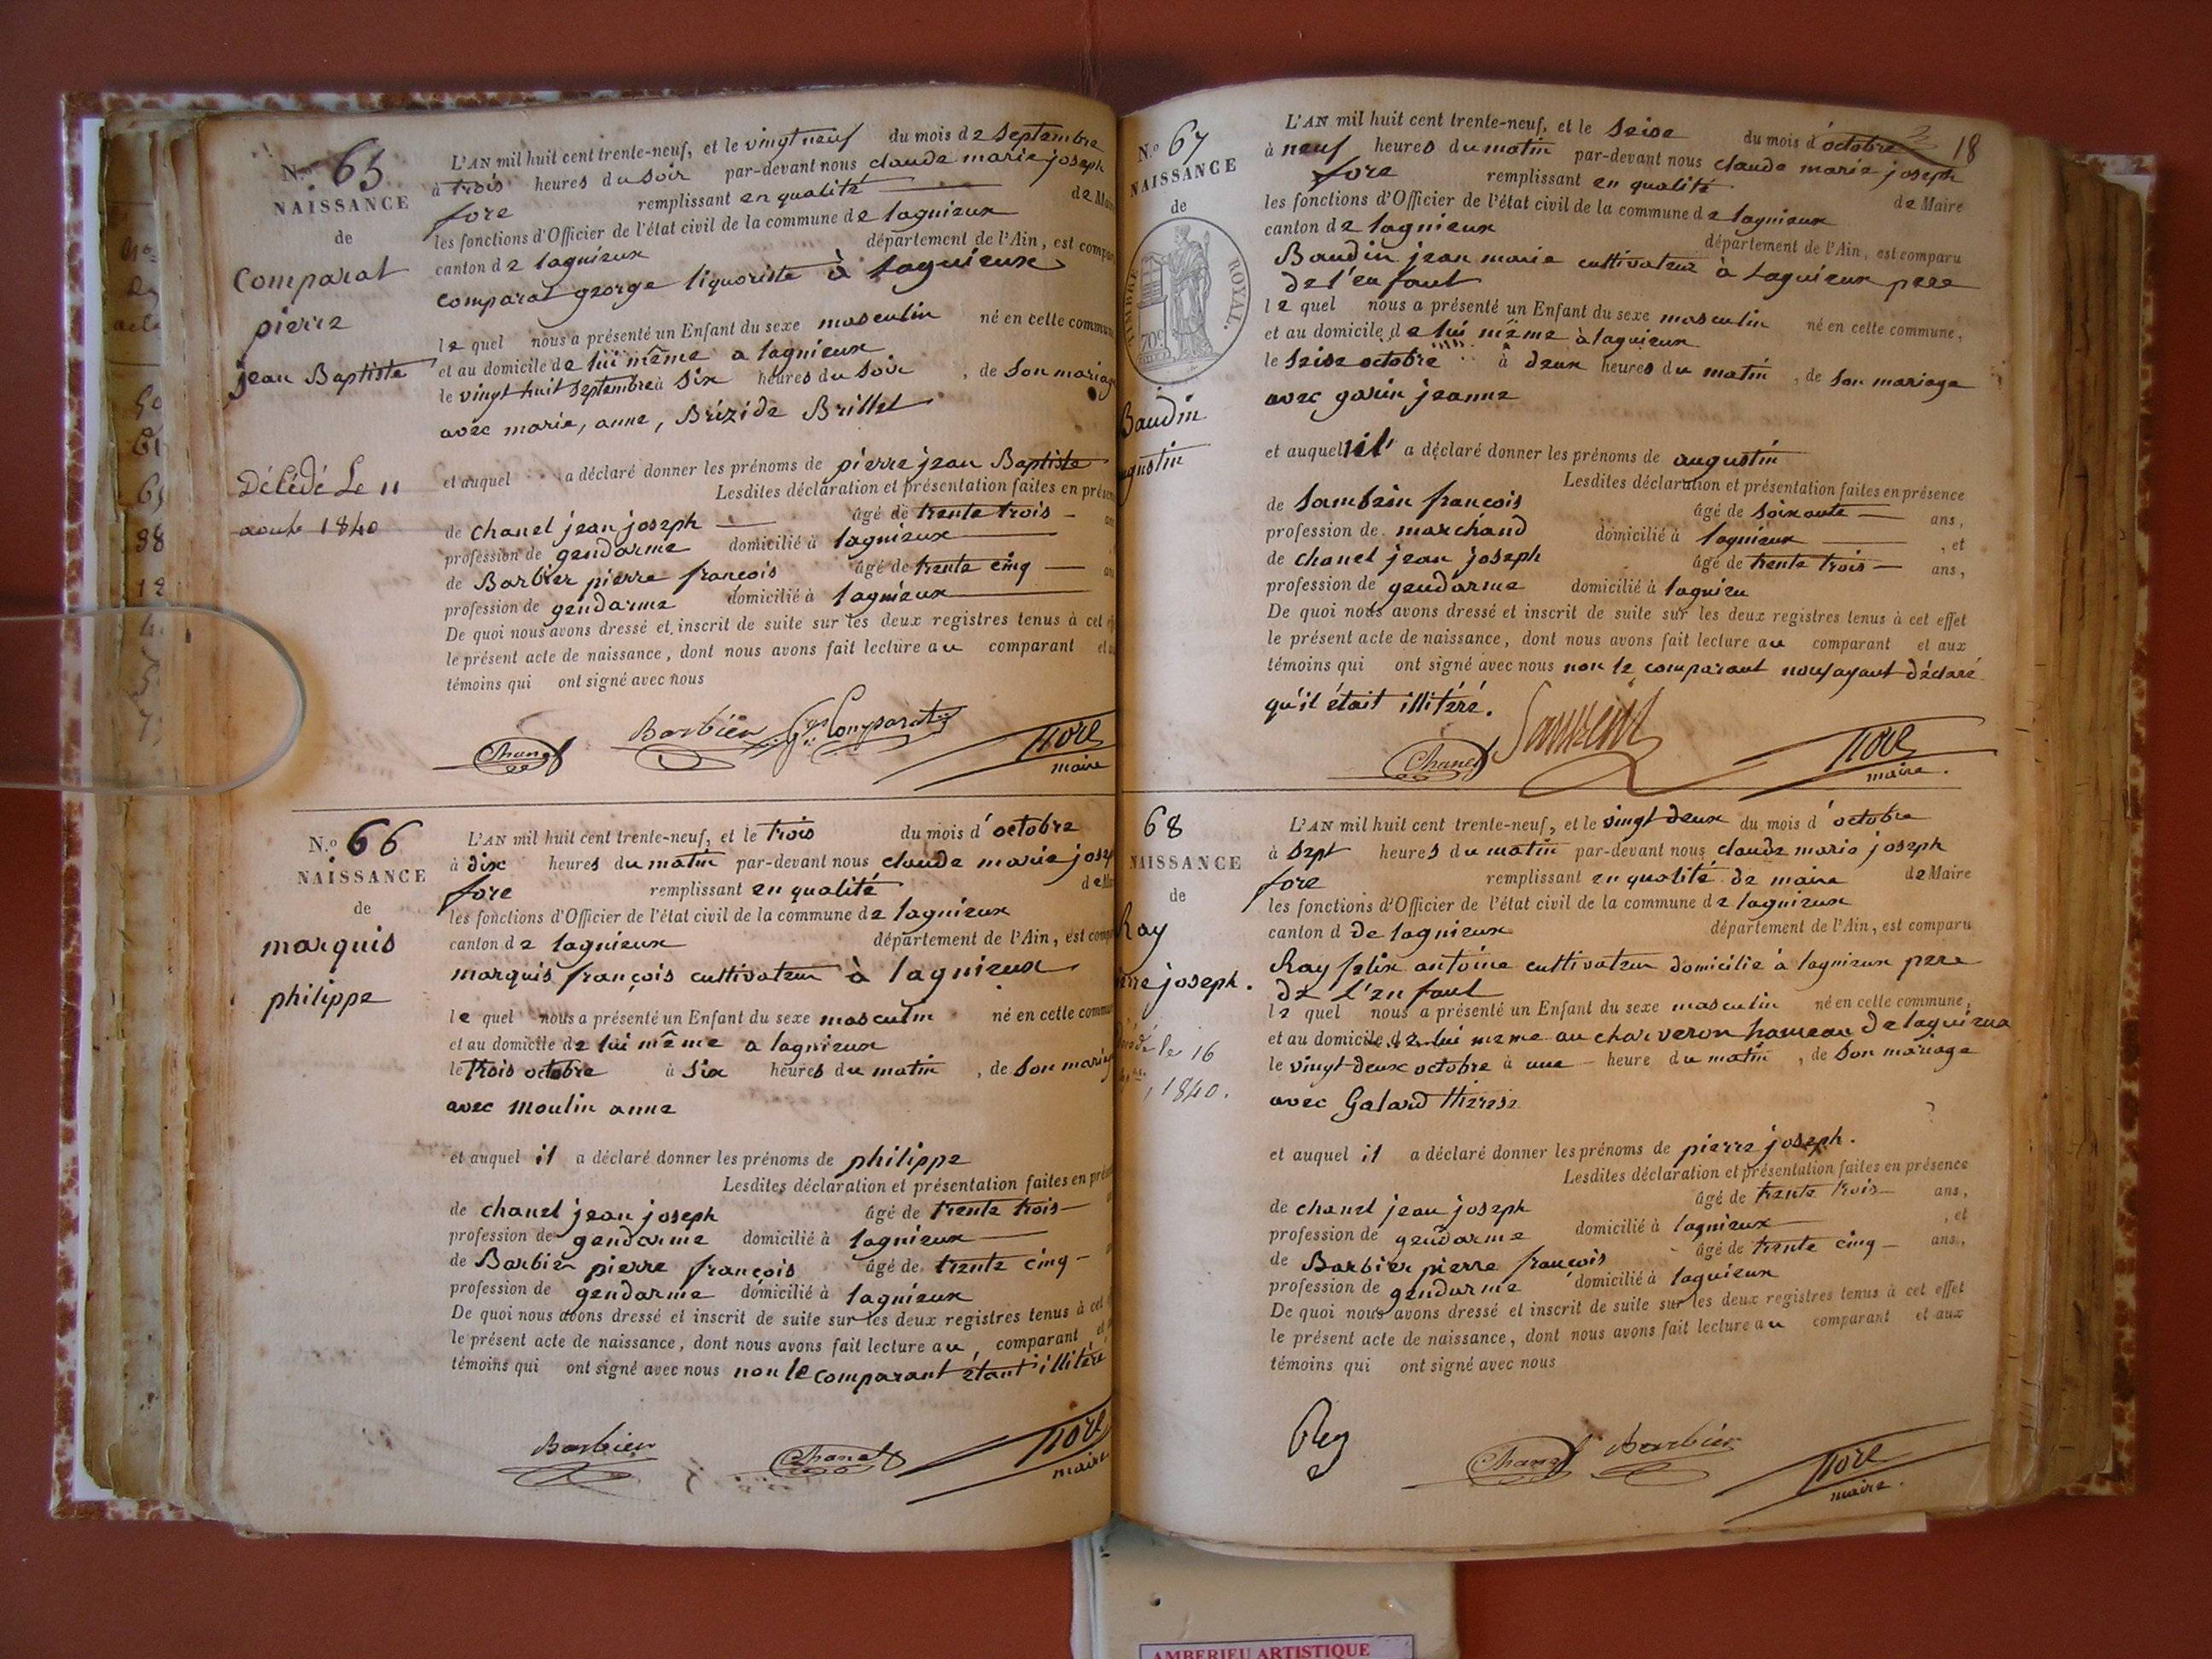 N.o 65
NAISSANCE
de
Comparat
pierre
jean Baptiste
Décédé Le 11
août 1840
L'AN mil huit cent trente-neuf, et le vingt neuf du mois de Septembre
à trois heures du soir par-devant nous claude marie joseph
fore remplissant en qualité de
les fonctions d'Officier de l'état civil de la commune de lagnieux
canton de lagnieux département de l'Ain, est
comparat george liquoriste à lagnieux
le quel nous a présenté un Enfant du sexe masculin né en cette
et au domicile de lui même a lagnieux
le vingt huit septembre à six heures du soir, de son mariage
avec marie, anne, Brézide Brillet
et auquel a déclaré donner les prénoms de pierre jean Baptiste
Lesdites déclaration et présentation faites en
de chanel jean joseph âgé de trente trois
profession de gendarme domicilié à lagnieux
de Barbier pierre françois âgé de trente cinq
profession de gendarme domicilié à lagnieux
De quoi nous avons dressé et inscrit de suite sur les deux registres tenus à cet
le présent acte de naissance, dont nous avons fait lecture au comparant
témoins qui ont signé avec nous
Chanel Barbier Comparat fore
maire
N.o 66
NAISSANCE
de
marquis
philippe
L'AN mil huit cent trente-neuf, et le trois du mois d'octobre
à dix heures du matin par-devant nous claude marie
fore remplissant en qualité
les fonctions d'Officier de l'état civil de la commune de lagnieux
canton de lagnieux département de l'Ain, est
marquis françois cultivateur à lagnieux
le quel nous a présenté un Enfant du sexe masculin né en cette
et au domicile de lui même a lagnieux
le trois octobre à six heures du matin, de son
avec moulin anne
et auquel il a déclaré donner les prénoms de philippe
Lesdites déclaration et présentation faites en
de chanel jean joseph âgé de trente trois
profession de gendarme domicilié à lagnieux
de Barbier pierre françois âgé de trente cinq
profession de gendarme domicilié à lagnieux
De quoi nous avons dressé et inscrit de suite sur les deux registres tenus à cet
le présent acte de naissance, dont nous avons fait lecture au comparant
témoins qui ont signé avec nous non le comparant étant illitéré
Barbier Chanel fore
maire
18
N.o 67
NAISSANCE
de
TIMBRE ROYAL.
70c
Baudin
L'AN mil huit cent trente-neuf, et le seise du mois d'octobre
à neuf heures du matin par-devant nous claude marie joseph
fore remplissant en qualité de Maire
les fonctions d'Officier de l'état civil de la commune de lagnieux
canton de lagnieux département de l'Ain, est comparu
Baudin jean marie cultivateur à lagnieux pere
de l'enfant
le quel nous a présenté un Enfant du sexe masculin né en cette commune,
et au domicile de lui même à lagnieux
le seise octobre à deux heures du matin, de son mariage
avec garin jeanne
et auquel il a déclaré donner les prénoms de augustin
Lesdites déclaration et présentation faites en présence
de Sambein françois âgé de soixante ans,
profession de marchand domicilié à lagnieux, et
de chanel jean joseph âgé de trente trois ans,
profession de gendarme domicilié à lagnieu
De quoi nous avons dressé et inscrit de suite sur les deux registres tenus à cet effet
le présent acte de naissance, dont nous avons fait lecture au comparant et aux
témoins qui ont signé avec nous non le comparant nous ayant déclaré
qu'il était illitéré.
Chanel fore
maire.
68
NAISSANCE
de
Ray
joseph.
le 16
1840.
L'AN mil huit cent trente-neuf, et le vingt deux du mois d'octobre
à sept heures du matin par-devant nous claude marie joseph
fore remplissant en qualité de maire de Maire
les fonctions d'Officier de l'état civil de la commune de lagnieux
canton d de lagnieux département de l'Ain, est comparu
Ray felix antoine cultivateur domicilié à lagnieux pere
de l'enfant
le quel nous a présenté un Enfant du sexe masculin né en cette commune,
et au domicile de lui meme au charveron hameau de lagnieux
le vingt-deux octobre à une heure du matin, de son mariage
avec Galard thérese
et auquel il a déclaré donner les prénoms de pierre joseph.
Lesdites déclaration et présentation faites en présence
de chanel jean joseph âgé de trente trois ans,
profession de gendarme domicilié à lagnieux, et
de Barbier pierre françois âgé de trente cinq ans,
profession de gendarme domicilié à lagnieux
De quoi nous avons dressé et inscrit de suite sur les deux registres tenus à cet effet
le présent acte de naissance, dont nous avons fait lecture au comparant et aux
témoins qui ont signé avec nous
Rey Chanel Barbier fore
maire.
AMBERIEU ARTISTIQUE